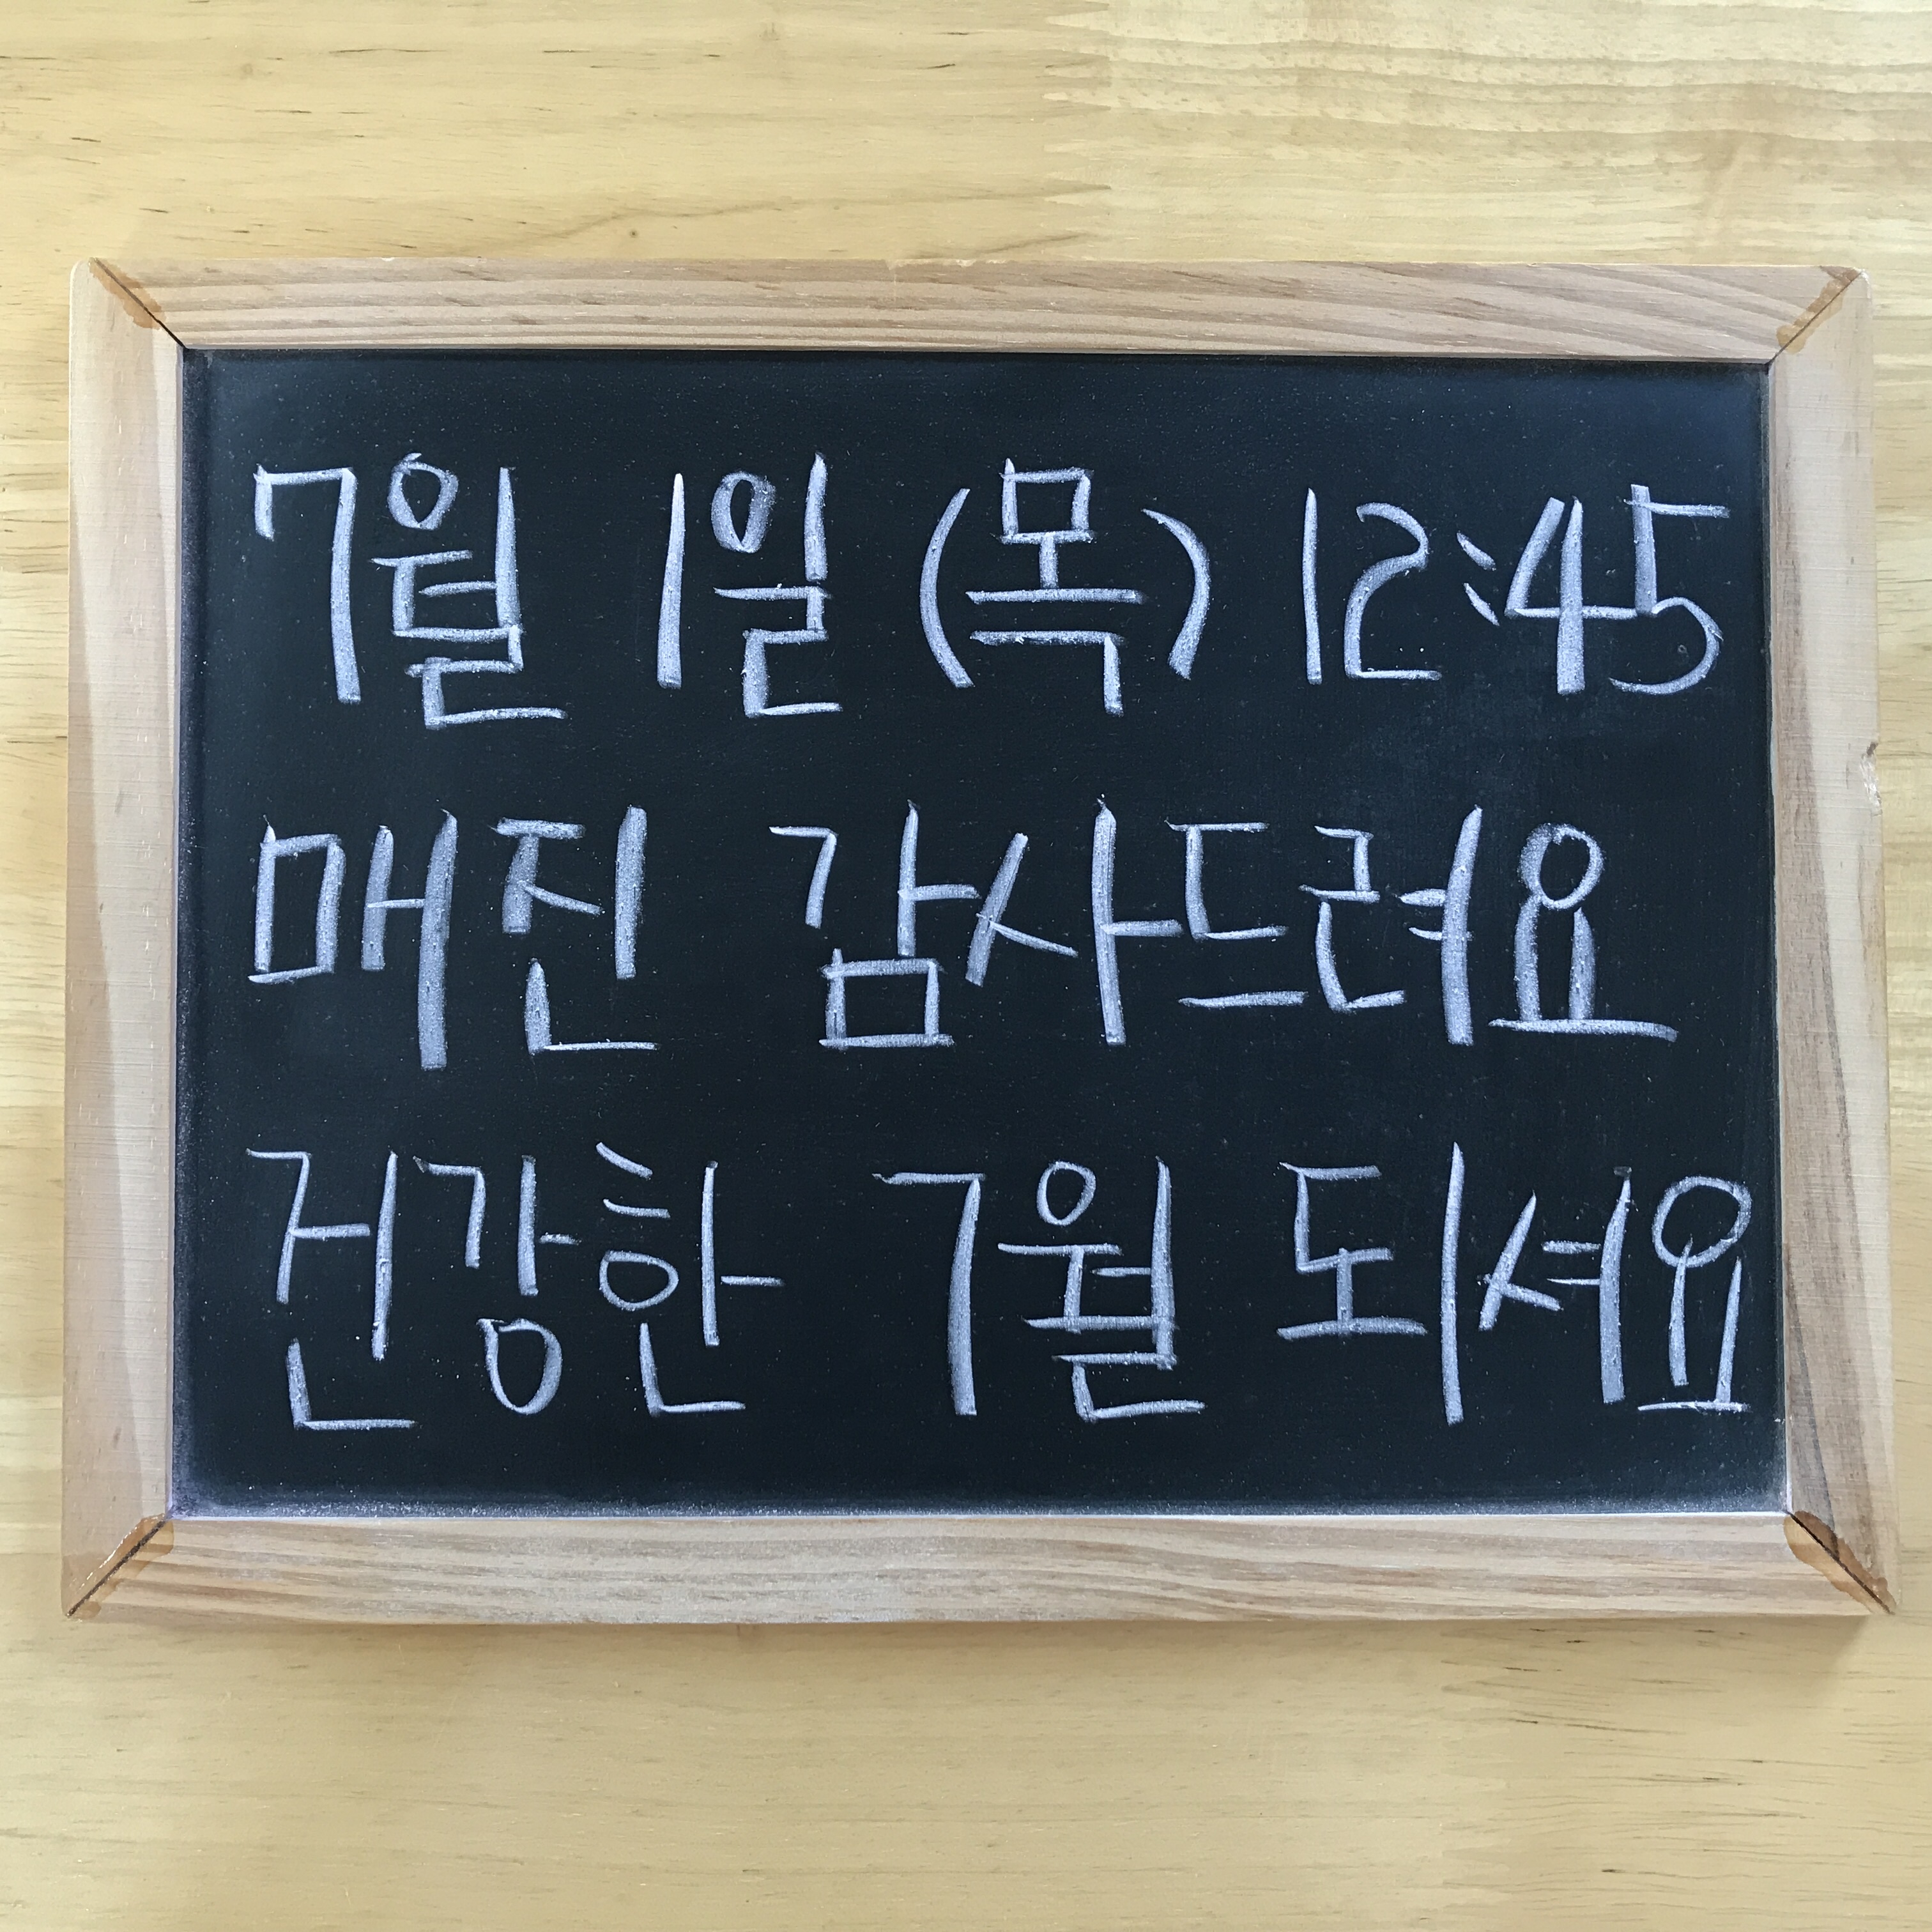 7월 1일 (목) 12:45
매진 감사드려요
건강한 7월 되셔요